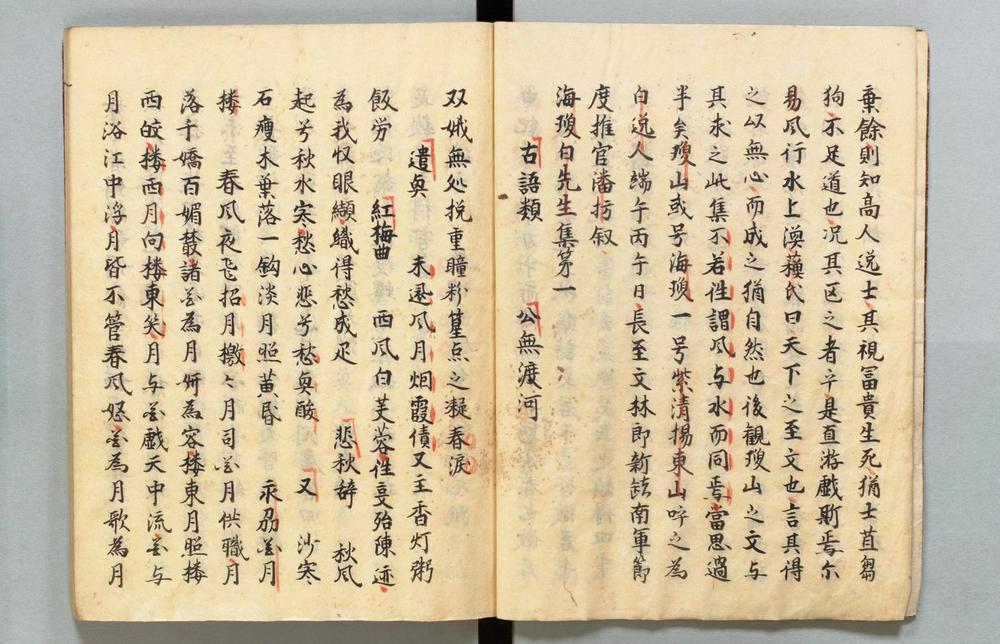 棄餘則知高人逸士其視冨貴生死猶土苴芻
狗不足道也况其区之者卒是直游戲斯焉尓
易風行水上渙蘓氏曰天下之至文也言其得
之以無心而成之猶自然也後観瓊山之文与
其求之此集不若徃謂風与水而同焉當思過
半矣瓊山或号海瓊一号紫清揚東山呼之為
白逸人端午丙午日長至文林郎新鈌南軍節
度推官潘枋叙
海瓊白先生集第一
古語類　公無渡河
双娥無処挽重瞳粉篁点之凝春淚
遣真　未還風月烟霞債又主香灯粥
飯労　紅梅曲　西風白芙蓉徃莫殆陳迹
為我収眼纈織得愁成疋　悲秋辞　秋風
起兮秋水寒愁心悲兮愁奥酸　又　沙寒
石瘦木葉落一鈎淡月照黄昏　永刕芲月
楼　春風夜飞招月檄々月司芲月供職月
落千嬌百媚蕟諸芲為月妍為容楼東月照楼
西皎楼西月向楼東矣月与芲戲天中流芲与
月浴江中浮月昏不管春風怒芲為月歌為月